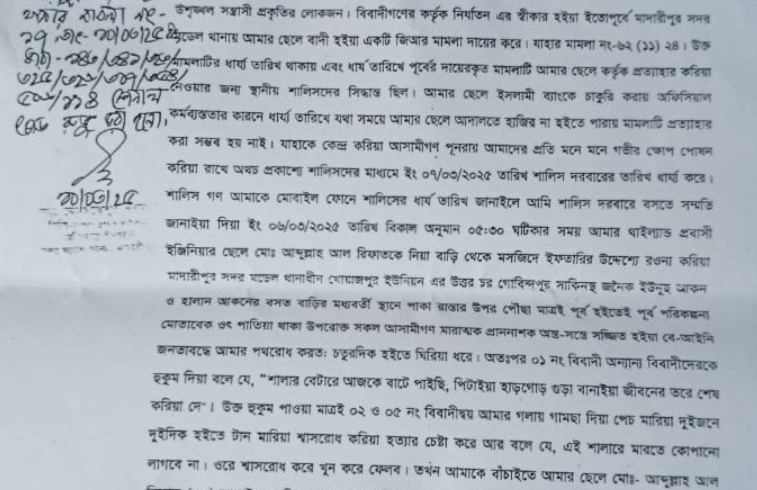 উশৃঙ্খল সন্ত্রাসী প্রকৃতির লোকজন। বিবাদীগণের কর্তৃক নির্যাতন এর স্বীকার হইয়া ইতোপূর্বে মাদারীপুর সদর
মডেল থানায় আমার ছেলে বাদী হইয়া একটি জিআর মামলা দায়ের করে। যাহার মামলা নং-৬২ (১১) ২৪। উক্ত
মামলাটির ধার্য্য তারিখ থাকায় এবং ধার্য তারিখে পূর্বের দায়েরকৃত মামলাটি আমার ছেলে কর্তৃক প্রত্যাহার করিয়া
নেওয়ার জন্য স্থানীয় শালিসদের সিদ্ধান্ত ছিল। আমার ছেলে ইসলামী ব্যাংকে চাকুরি করায় অফিসিয়াল
কর্মব্যস্ততার কারনে ধার্য্য তারিখে যথা সময়ে আমার ছেলে আদালতে হাজির না হইতে পারায় মামলাটি প্রত্যাহার
করা সম্ভব হয় নাই। যাহাকে কেন্দ্র করিয়া আসামীগণ পুনরায় আমাদের প্রতি মনে মনে গভীর ক্ষোপ পোষন
করিয়া রাখে অথচ প্রকাশ্যে শালিসদের মাধ্যমে ইং ০৭/০৩/২০২৫ তারিখ শালিস দরবারের তারিখ ধার্য্য করে।
শালিস গণ আমাকে মোবাইল ফোনে শালিসের ধার্য তারিখ জানাইলে আমি শালিস দরবারে বসতে সম্মতি
জানাইয়া দিয়া ইং ০৬/০৩/২০২৫ তারিখ বিকাল অনুমান ০৫:৩০ ঘটিকার সময় আমার থাইল্যান্ড প্রবাসী
ইঞ্জিনিয়ার ছেলে মোঃ আব্দুল্লাহ আল রিফাতকে নিয়া বাড়ি থেকে মসজিদে ইফতারির উদ্দেশ্যে রওনা করিয়া
মাদারীপুর সদর মডেল থানাধীন খোয়াজপুর ইউনিয়ন এর উত্তর চর গোবিন্দপুর সাকিনস্থ জনৈক ইউনুছ আকন
ও হালান আকনের বসত বাড়ির মধ্যবর্তী স্থানে পাকা রাস্তার উপর পৌছা মাত্রই পূর্ব হইতেই পূর্ব পরিকল্পনা
মোতাবেক ওৎ পাতিয়া থাকা উপরোক্ত সকল আসামীগণ মারাত্মক প্রাননাশক অস্ত্র-সস্ত্রে সজ্জিত হইয়া বে-আইনি
জনতাবদ্ধে আমার পথরোধ করতঃ চতুরদিক হইতে ঘিরিয়া ধরে। অতঃপর ০১ নং বিবাদী অন্যান্য বিবাদীদেরকে
হুকুম দিয়া বলে যে, “শালার বেটারে আজকে বাটে পাইছি, পিটাইয়া হাড়গোড় গুড়া বানাইয়া জীবনের তরে শেষ
করিয়া দে"। উক্ত হুকুম পাওয়া মাত্রই ০২ ও ০৫ নং বিবাদীদ্বয় আমার গলায় গামছা দিয়া পেচ মারিয়া দুইজনে
দুইদিক হইতে টান মারিয়া শ্বাসরোধ করিয়া হত্যার চেষ্টা করে আর বলে যে, এই শালারে মারতে কোপানো
লাগবে না। ওরে শ্বাসরোধ করে খুন করে ফেলব। তখন আমাকে বাঁচাইতে আমার ছেলে মোঃ- আব্দুল্লাহ আল